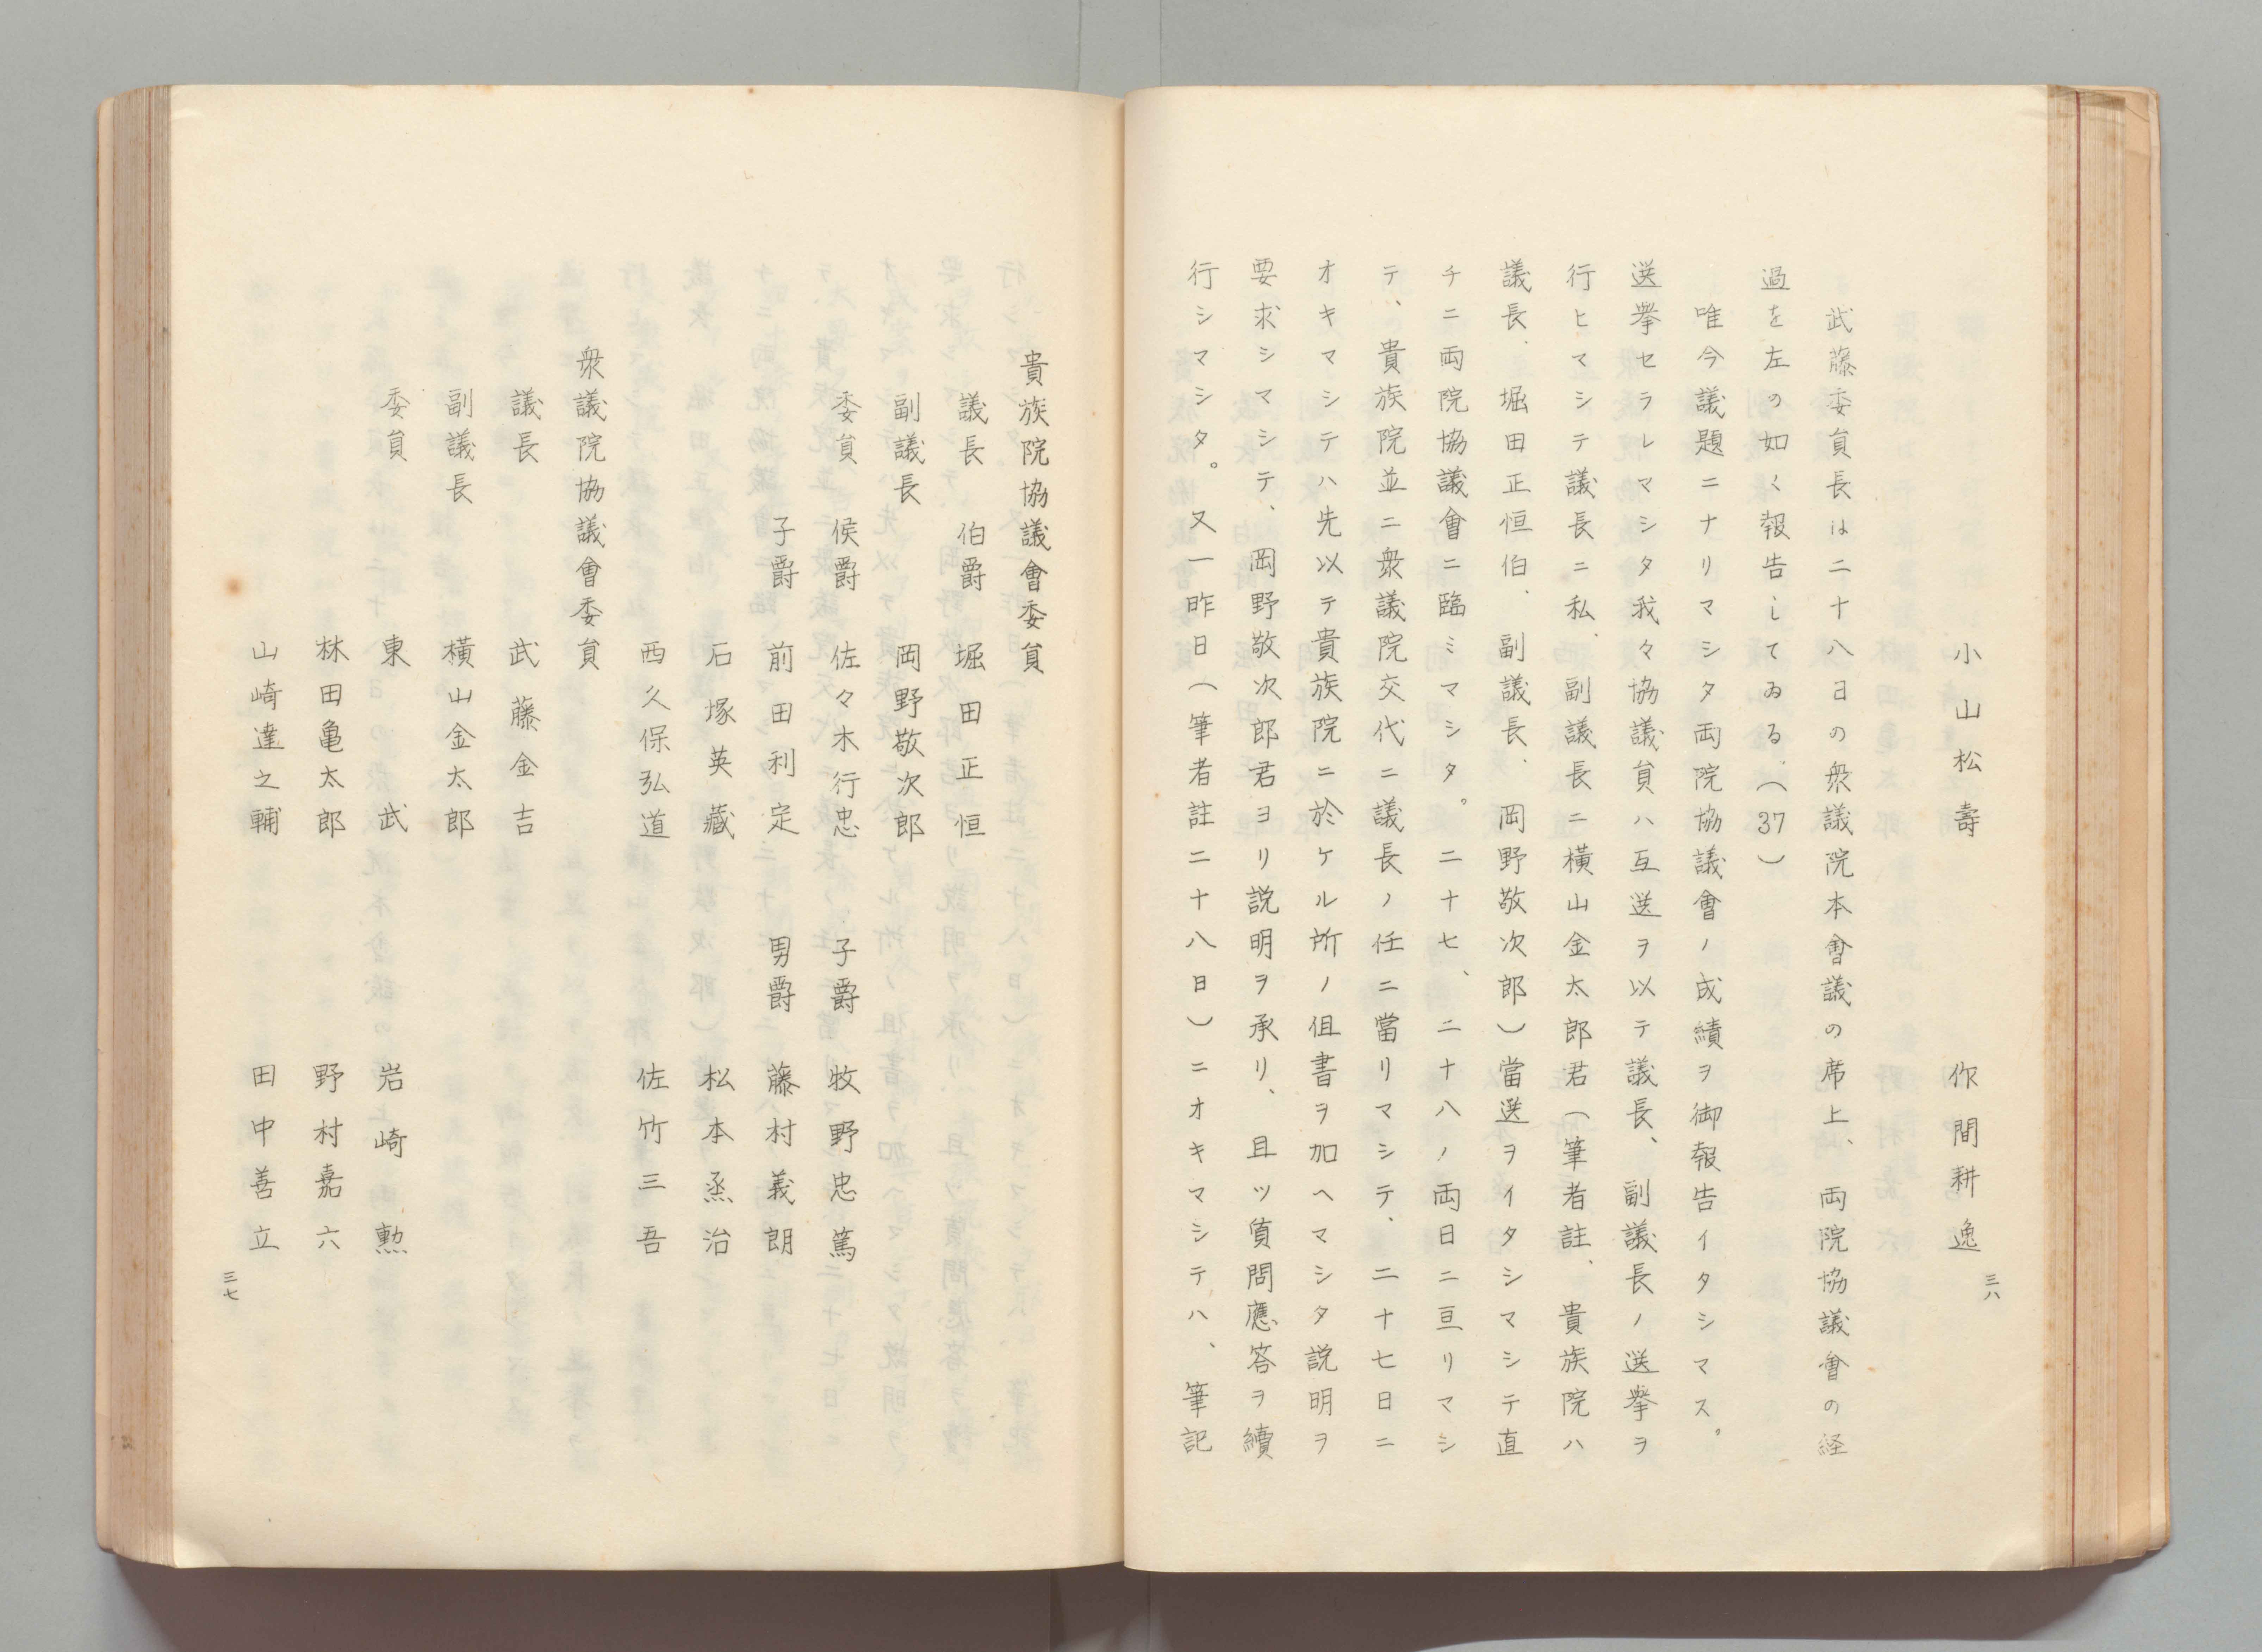 貴族院協議會委員
議長　伯爵　堀田正恒
副議長　岡野敬次郎
委員　侯爵　佐々木行忠　子爵　牧野忠篤
子爵　前田利定　男爵　藤村義朗
石塚英藏　松本烝治
西久保弘道　佐竹三吾
衆議院協議會委員
議長　武藤金吉
副議長　横山金太郎
委員　東　武　岩崎　勲
林田亀太郎　野村嘉六
山崎達之輔　田中善立
三七
三八
小山松壽　作間耕逸
武藤委員長は二十八日の衆議院本會議の席上、両院協議會の経
過を左の如く報告してゐる。（37）
唯今議題ニナリマシタ両院協議會ノ成績ヲ御報告イタシマス。
選挙セラレマシタ我々協議員ハ互選ヲ以テ議長、副議長ノ選挙ヲ
行ヒマシテ議長ニ私、副議長ニ横山金太郎君（筆者註、貴族院ハ
議長、堀田正恒伯、副議長、岡野敬次郎）當選ヲイタシマシテ直
チニ両院協議會ニ臨ミマシタ。二十七、二十八ノ両日ニ亘リマシ
テ、貴族院並ニ衆議院交代ニ議長ノ任ニ當リマシテ、二十七日ニ
オキマシテハ先以テ貴族院ニ於ケル所ノ但書ヲ加ヘマシタ説明ヲ
要求シマシテ、岡野敬次郎君ヨリ説明ヲ承リ、且ツ質問應答ヲ續
行シマシタ。又一昨日（筆者註二十八日）ニオキマシテハ、筆記